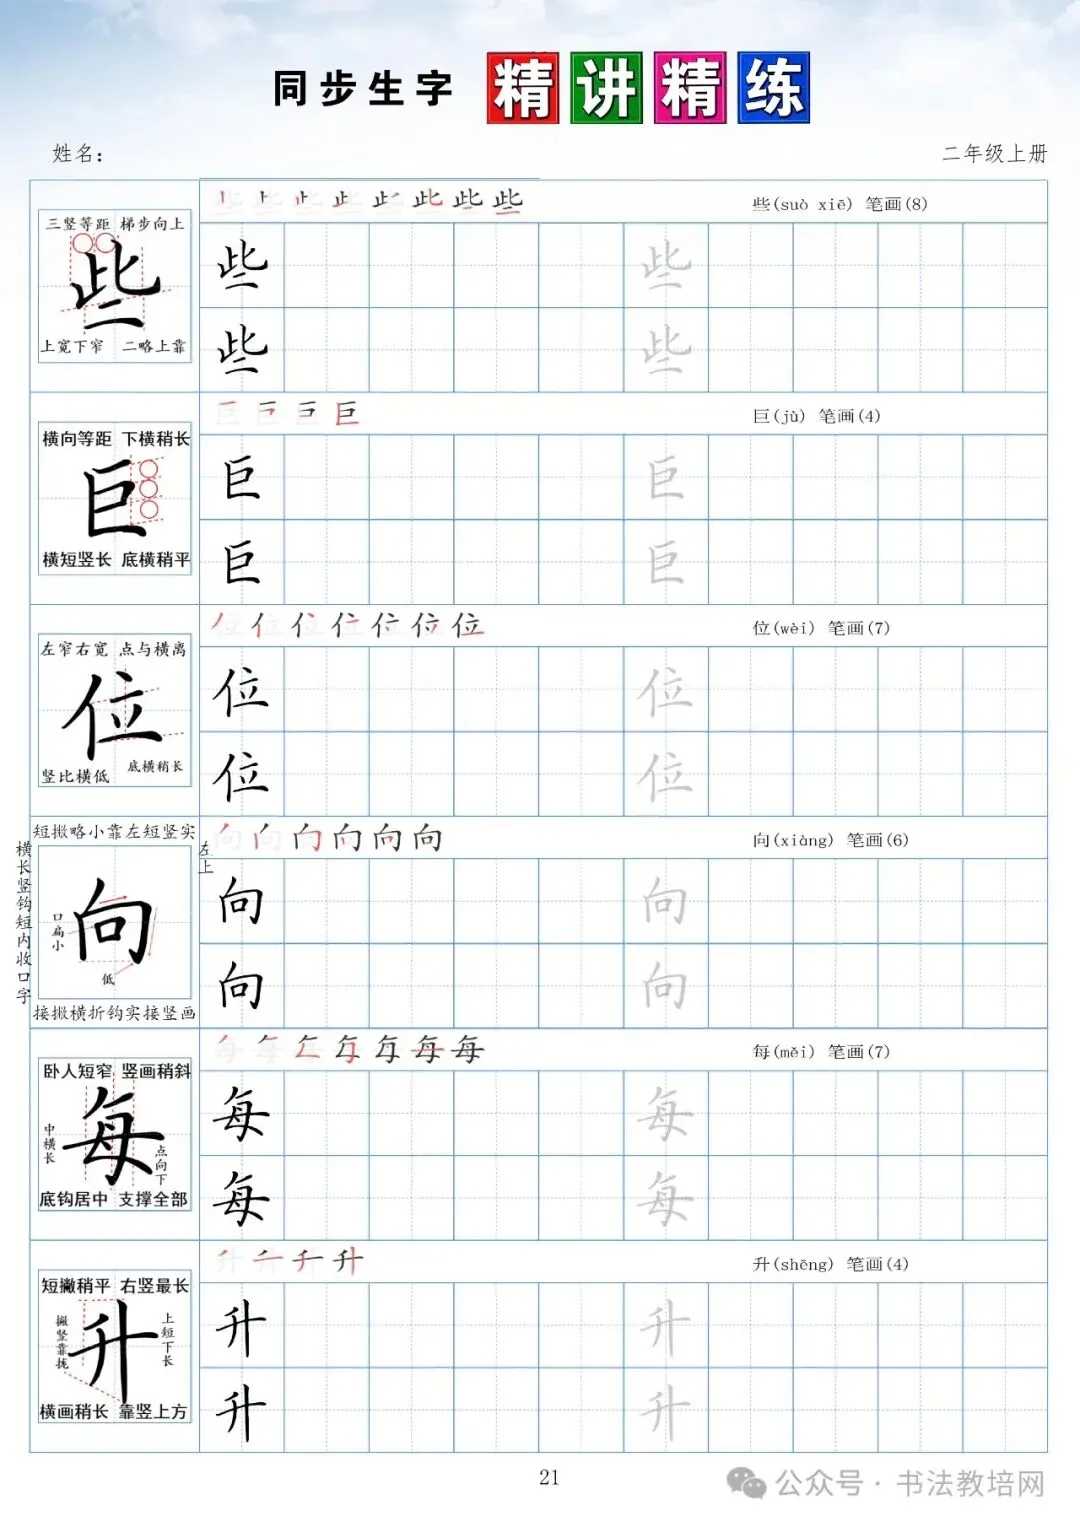 同步生字 精讲精练
姓名：
二年级上册
些(suò xiē) 笔画(8)
三竖等距 梯步向上
些
上宽下窄 二略上靠
些 些
些 些
巨(jù) 笔画(4)
横向等距 下横稍长
巨
横短竖长 底横稍平
巨 巨
巨 巨
位(wèi) 笔画(7)
左窄右宽 点与横离
位
竖比横低 底横稍长
位 位
位 位
向(xiàng) 笔画(6)
短撇略小靠左短竖实
横长竖钩短内收口字
左上
向
口扁小
低
接撇横折钩实接竖画
向 向
向 向
每(měi) 笔画(7)
卧人短窄 竖画稍斜
中横长
每
点向下
底钩居中 支撑全部
每 每
每 每
升(shēng) 笔画(4)
短撇稍平 右竖最长
撇竖靠拢
升
上短下长
横画稍长 靠竖上方
升 升
升 升
21
公众号·书法教培网